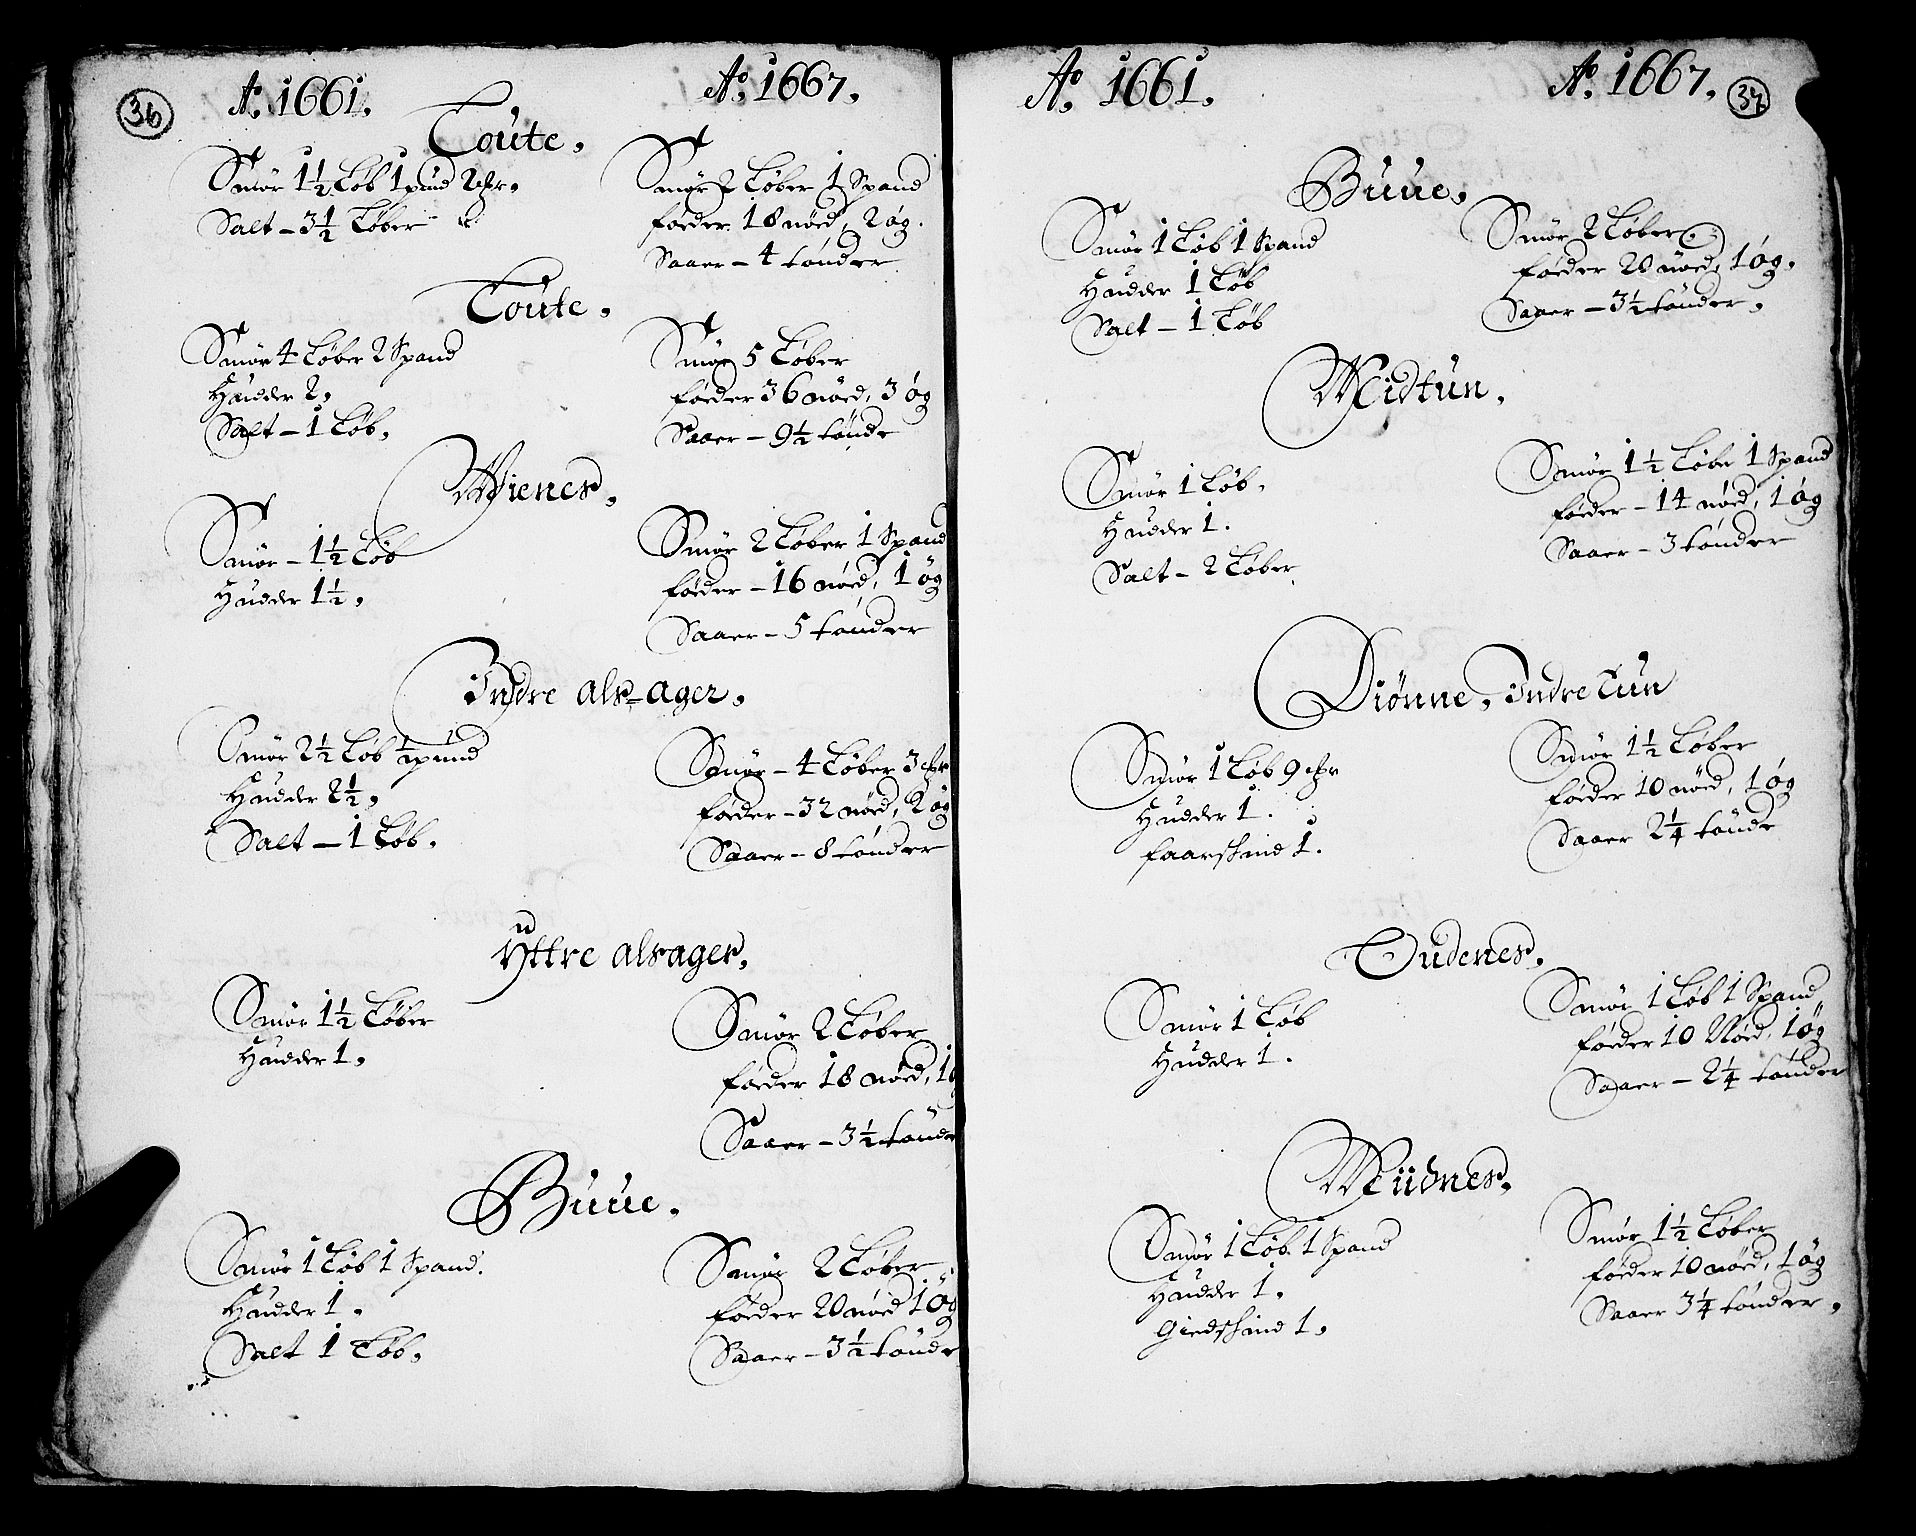 36
Ao. 1661.
Ao. 1667.
Toute.
Smør 1½ Løb 1 pund
Salt – 3½ Løber
Smør 2 Løber 1 Spand
føeder 18 nöed, 2 øg.
Saaer – 4 tönder
Toute.
Smør 4 Løber 2 Spand
Huder 2.
Salt – 1 Løb.
Smør 5 Løber
føeder 36 nöed, 3 øg
Saaer – 9½ tönde
Wienes.
Smør – 1½ Løb
Huder 1½.
Smør 2 Løber 1 Spand
føeder – 16 nöed, 1 øg
Saaer – 5 tönder
Indre als-ager.
Smør 2½ Løb ½ pund
Huder 2½.
Salt – 1 Løb.
Smør – 4 Løber 3
føeder – 32 nöed, 2 øg
Saaer – 8 tönder
Yttre alsager.
Smør 1½ Løber
Huder 1.
Smør 2 Løber
føeder 18 nöed, 1
Saaer – 3½ tönde
Buue.
Smør 1 Løb 1 Spand.
Huder 1.
Salt 1 Løb.
Smør 2 Løber
føeder 20 nöed 1 øg
Saaer – 3½ tönde
Ao. 1661.
Ao. 1667.
37
Buue.
Smør 1 Løb 1 Spand
Hudder 1 Løb
Salt – 1 Løb
Smør 2 Løber
føeder 20 nöed, 1 øg.
Saaer – 3½ tönder.
Midtun.
Smør 1 Løb.
Hudder 1.
Salt – 2 Løber
Smør 1½ Løbe 1 Spand
føeder – 14 nöed, 1 øg
Saaer – 3 tönder
Diönne, Indre Tun
Smør 1 Løb 9
Hudder 1.
faarskind 1.
Smør 1½ Løber
føeder 10 nöed, 1 øg
Saaer 2¼ tönde
Oudenes.
Smør 1 Løb
Hudder 1.
Smør 1 Løb 1 Spand
føeder 10 Nöed, 1 øg
Saaer – 2¼ tönder
Miidnes.
Smør 1 Løb 1 Spand
Hudder 1.
Giedskind 1.
Smør 1½ Løber
føeder 10 nöed, 1 øg
Saaer 3¼ tönder.